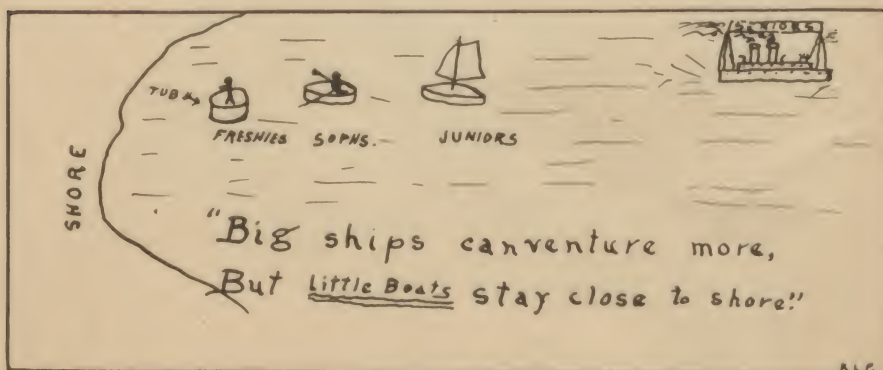 SENIORS
TUB
FRESHIES SOPHS. JUNIORS
SHORE
"Big ships canventure more,
But Little Boats stay close to shore."